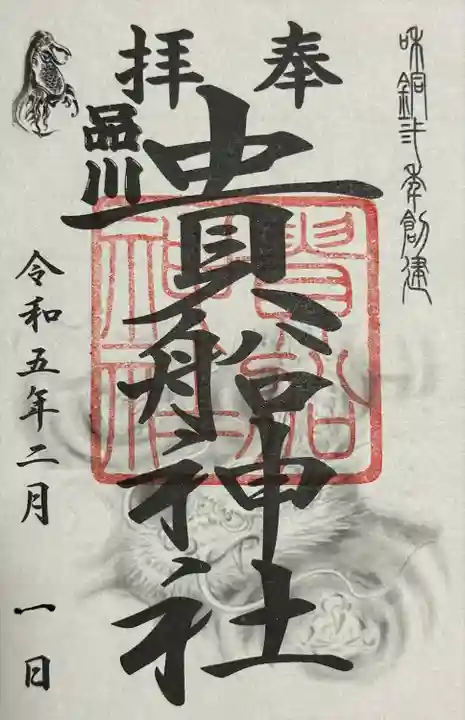 和銅弍年創建
奉拝
品川
貴船神社
貴船
神社
令和五年二月一日